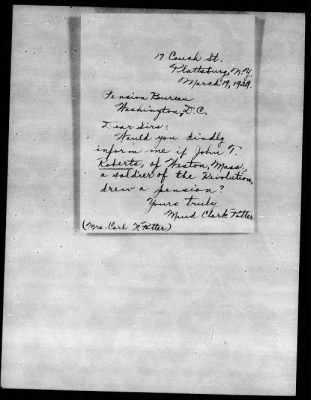 17 Couch St.
Plattsburg, N.Y.
March 19, 1929.
Pension Bureau
Washington, D.C.
Dear Sirs:
Would you kindly
inform me if John T.
Roberts, of Weston, Mass.
a soldier of the Revolution,
drew a pension?
Yours truly
Maud Clark Potter
(Mrs. Carl H. Potter)